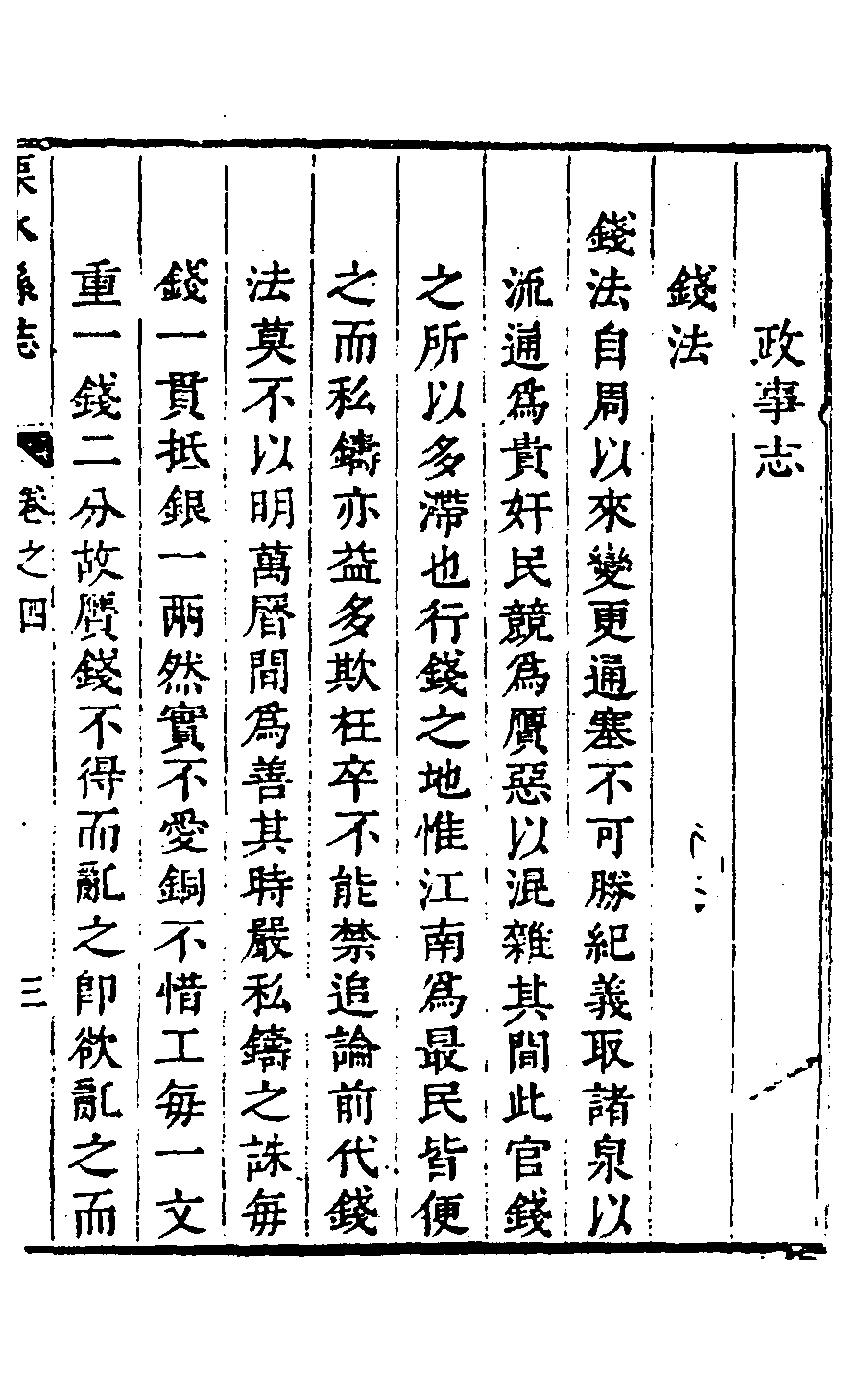 政事志
錢法
錢法自周以來變更通塞不可勝紀義取諸泉以
流通爲貴奸民競爲贗惡以混雜其間此官錢
之所以多滯也行錢之地惟江南爲最民皆便
之而私鑄亦益多欺枉卒不能禁追論前代錢
法莫不以明萬曆間爲善其時嚴私鑄之誅每
錢一貫抵銀一兩然實不愛銅不惜工每一文
重一錢二分故贋錢不得而亂之卽欲亂之而
溧水縣志 卷之四 三